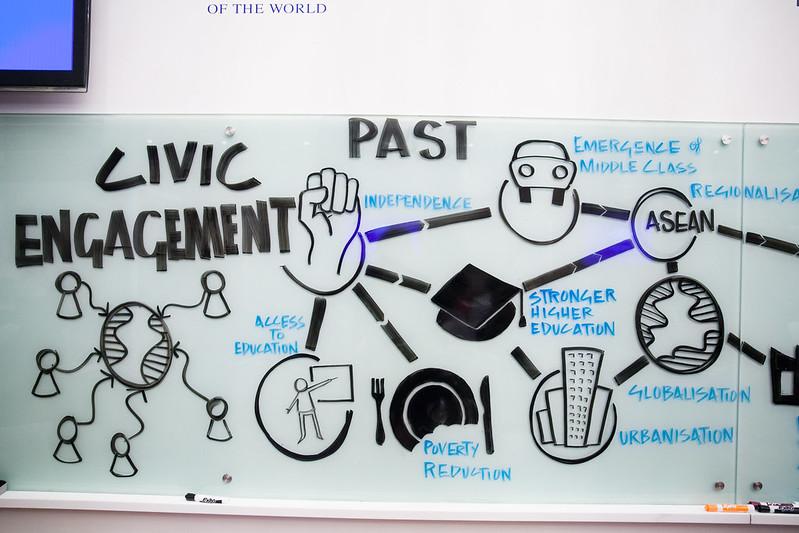 OF THE WORLD
PAST
CIVIC
ENGAGEMENT
INDEPENDENCE
EMERGENCE of
MIDDLE CLASS
ASEAN
ACCESS
TO
EDUCATION
STRONGER
HIGHER
EDUCATION
POVERTY
REDUCTION
GLOBALISATION
URBANISATION